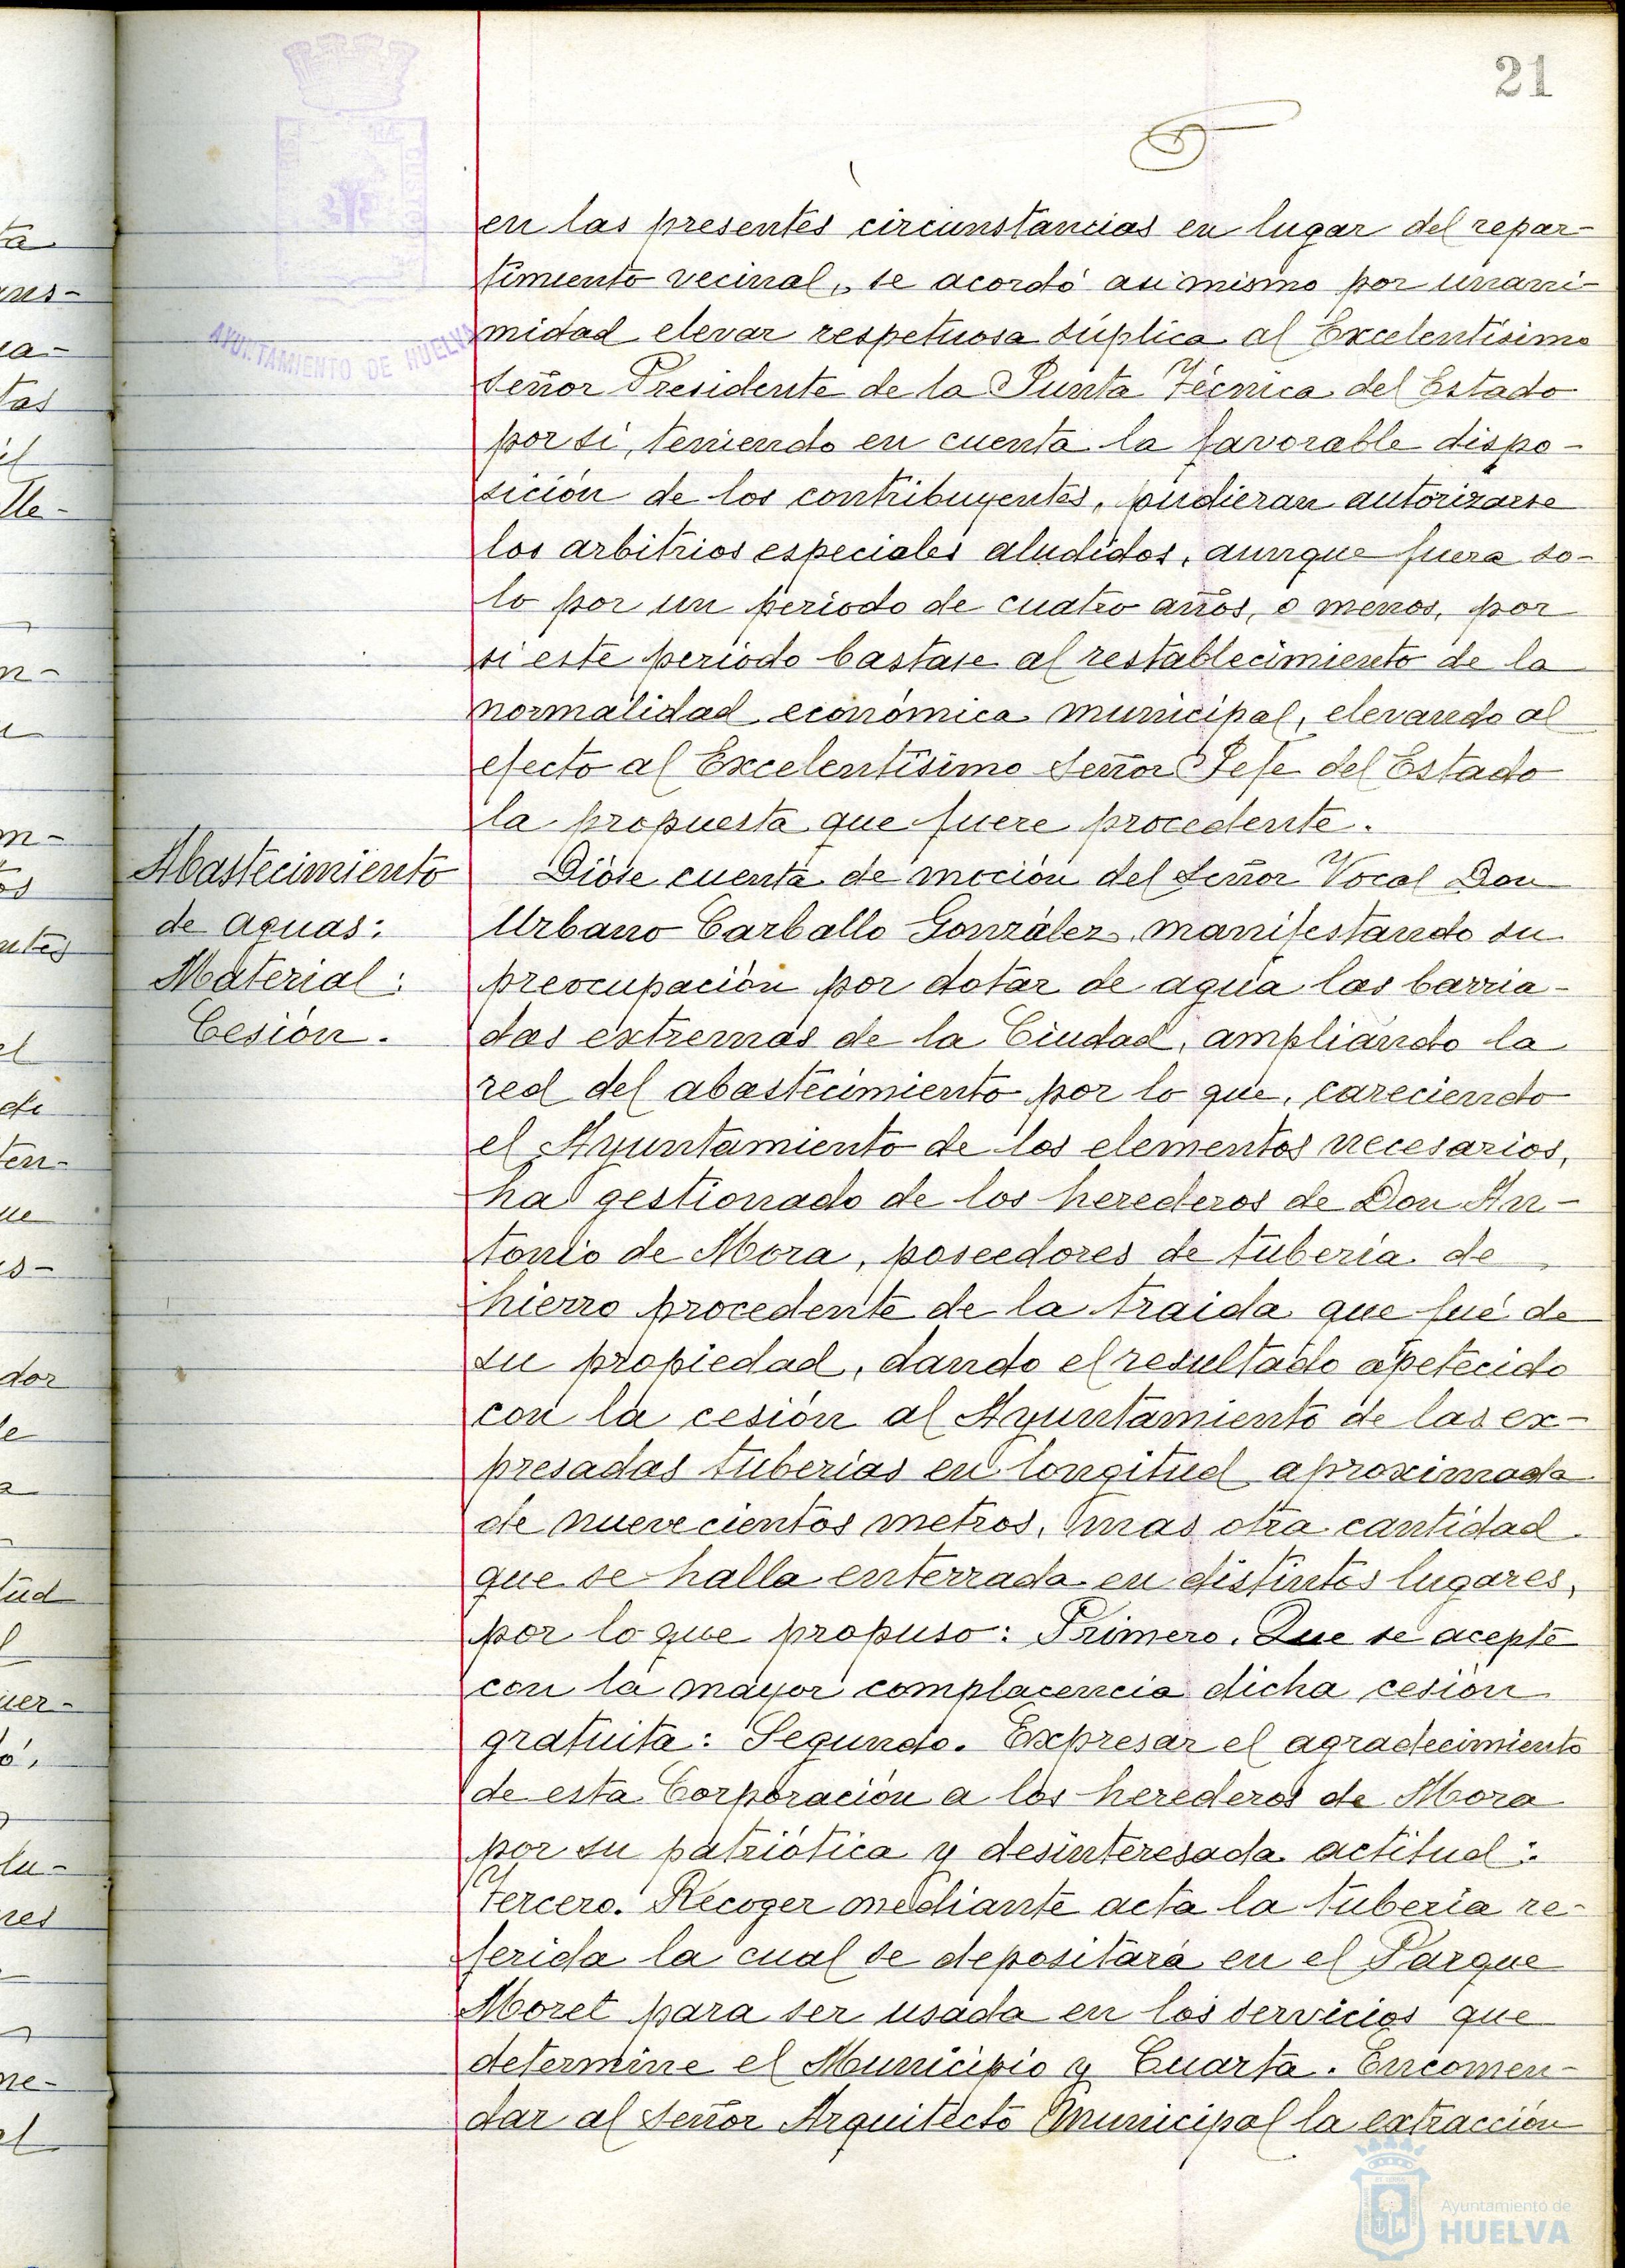 21
AYUNTAMIENTO DE HUELVA
en las presentes circunstancias en lugar del repar-
timiento vecinal, se acordó asi mismo por unani-
midad elevar respetuosa súplica al Excelentísimo
Señor Presidente de la Junta Técnica del Estado
por si, teniendo en cuenta la favorable dispo-
sición de los contribuyentes, pudieran autorizarse
los arbitrios especiales aludidos, aunque fuera so-
lo por un periodo de cuatro años, o menos, por
si este periodo bastase al restablecimiento de la
normalidad económica municipal, elevando al
efecto al Excelentísimo Señor Jefe del Estado
la propuesta que fuere procedente.
Abastecimiento
de aguas:
Material:
Cesión.
Dióse cuenta de moción del Señor Vocal Don
Urbano Carballo González, manifestando su
preocupación por dotar de agua las barria-
das extremas de la Ciudad, ampliando la
red del abastecimiento por lo que, careciendo
el Ayuntamiento de los elementos necesarios,
ha gestionado de los herederos de Don An-
tonio de Mora, poseedores de tubería de
hierro procedente de la traida que fué de
su propiedad, dando el resultado apetecido
con la cesión al Ayuntamiento de las ex-
presadas tuberías en longitud aproximada
de nuevecientos metros, mas otra cantidad
que se halla enterrada en distintos lugares,
por lo que propuso: Primero. Que se acepte
con la mayor complacencia dicha cesión
gratuita: Segundo. Expresar el agradecimiento
de esta Corporación a los herederos de Mora
por su patriótica y desinteresada actitud:
Tercero. Recoger mediante acta la tubería re-
ferida la cual se depositará en el Parque
Moret para ser usada en los servicios que
determine el Municipio y Cuarta. Encomen-
dar al Señor Arquitecto Municipal la extracción
Ayuntamiento de
HUELVA